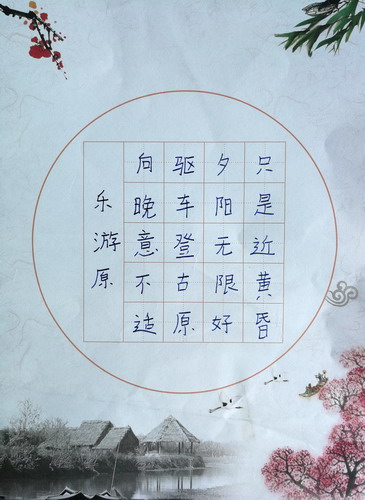 乐游原
向晚意不适
驱车登古原
夕阳无限好
只是近黄昏